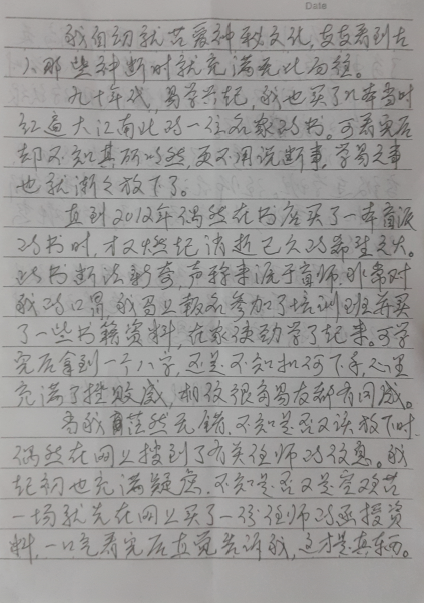 Date
我自幼就苦爱神秘文化,每每看到古
人那些神断时就充满无比向往。
九十年代,易学兴起,我也买了几本当时
红遍大江南北的一位名家的书。可看完后
却不知其所以然,更不用说断事,学易之事
也就渐渐放下了。
直到2012年偶然在书店买了一本盲派
的书时,才又燃起消逝已久的希望之火。
此书断法新奇,声称来源于盲师,非常对
我的口胃,我马上报名参加了培训班并买
了一些书籍资料,在家使劲学了起来。可学
完后拿到一个八字,还是不知如何下手,心里
充满了挫败感,相信很多易友都有同感。
当我茫然无错,不知是否又该放下时,
偶然在网上搜到了有关任师的信息。我
起初也充满疑虑,不知是否又是空欢喜
一场就先在网上买了一份任师的函授资
料,一口气看完后直觉告诉我,这才是真东西。